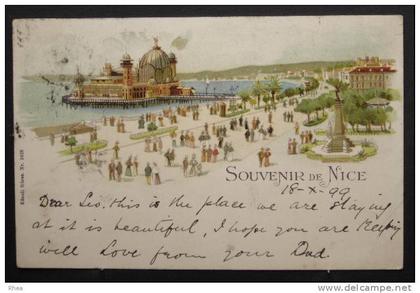 SOUVENIR DE NICE
18-X-99
Dear Leo, this is the place we are staying
at it is beautiful, I hope you are keeping
well Love from your Dad.
Künzli frères Nr. 1029
www.delcampe.net